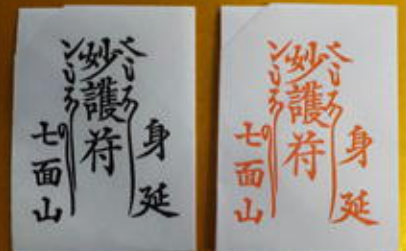 身延
妙護符
七面山
身延
妙護符
七面山